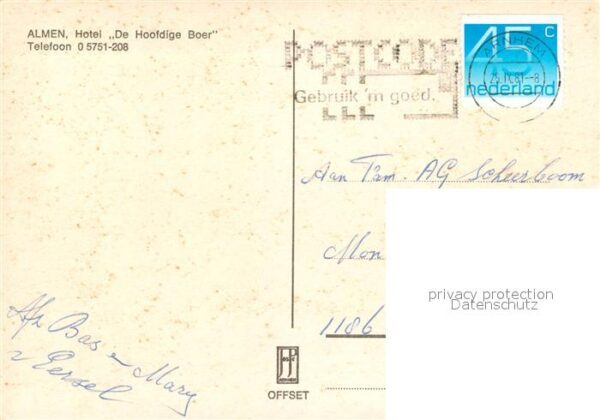 ALMEN, Hotel „De Hoofdige Boer"
Telefoon 0 5751-208
POSTCODE
Gebruik 'm goed.
ARNHEM
45 c
nederland
Aan Fam. AG Scheerboom
Mon
1186
privacy protection
Datenschutz
Bas – Mary
v Eersel
OFFSET